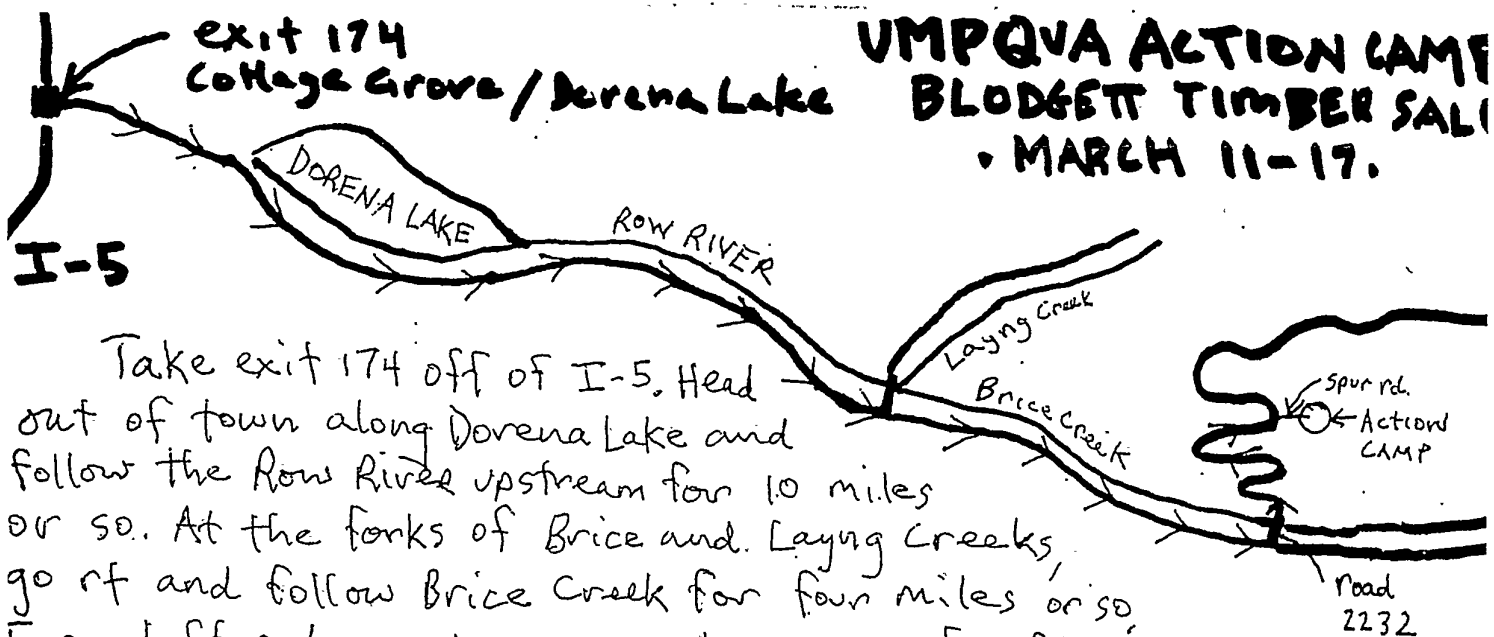 exit 174
Cottage Grove / Dorena Lake
UMPQUA ACTION CAMP
BLODGETT TIMBER SALE
• MARCH 11-17.
I-5
DORENA LAKE
ROW RIVER
Layng Creek
Brice Creek
Spur rd.
ACTION
CAMP
Road
2232
Take exit 174 off of I-5. Head
out of town along Dorena Lake and
follow the Row River upstream for 10 miles
or so. At the forks of Brice and Layng Creeks,
go rt and follow Brice Creek for four miles or so,